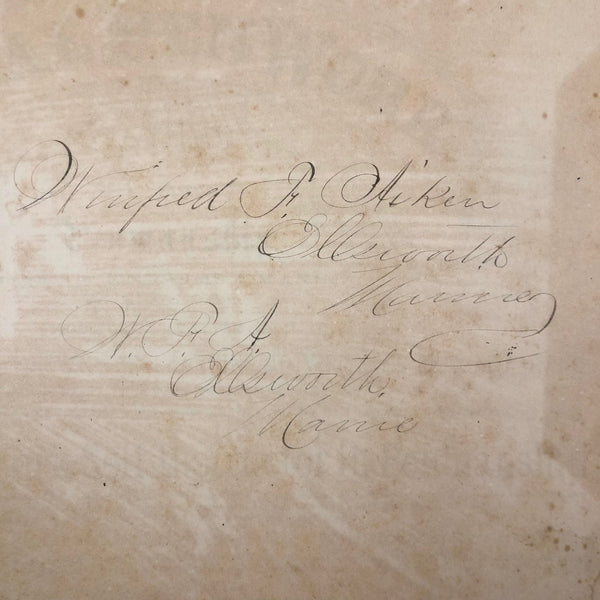 Winfred F. Aiken
Ellsworth
Maine
W. F. A.
Ellsworth
Maine